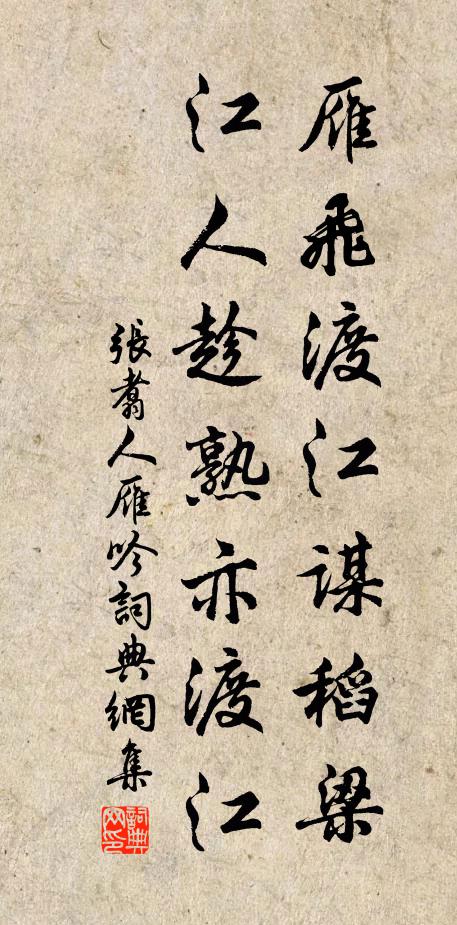 雁飛渡江謀稻粱
江人趁熟亦渡江
張翥人雁吟詞典網集
詞典网印